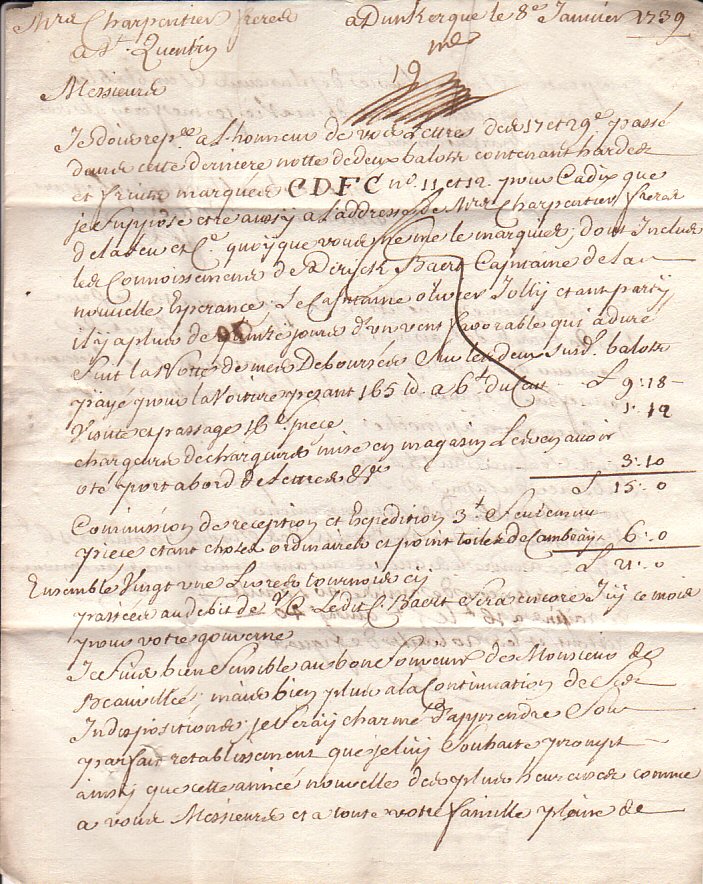 Mrs Charpentier freres a Dunkerque le 8e Janvier 1739
a St. Quentin
19
Messieurs
Je dois rep.se a l'honneur de vos Lettres des 17 et 29e passé
dans cette derniere notte de deux balots contenant hardes
et fruits marquéz CDFC no. 11 et 12 pour Cadix que
je suppose etre aussy a l'addresse de Mrs Charpentier freres
delaleu et Ce quoyque vous ne me le marquiez, dont Inclus
les Connoissements de Diryck Baert Capitaine de la
nouvelle Esperance Le Capitaine olivier Jolly etant party
il y a plus de quinze jours d'un vent favorable qui a duré
Suit la Notte de mes Deboursés Sur les deux Susd. balots
payé pour la Voiture pezant 165 lb. a 6 du Cent £ 9:18
Visite et passage 16s piece 1:12
chargeurs dechargeurs mise en magasin Lesenavoir
oté port abord de Lettres &c 3:10
£ 15:0
Commission de reception et Expedition 3 Seulement
piece etant choses ordinaires et point toiles de Cambray 6:0
£ 21:0
Ensemble Vingt une Livres tournois cy
passées au debit de V/C Ledit C. Baert sera encore Icy ce mois
pour votre gouverne
Je Suis bien Sensible au bon Souvenir de Monsieur de
Beauvillé; mais bien plus a la Continuation de Ses
Indispositions; je Seray charmé d'apprendre Son
parfait retablissement que je luy Souhaite prompt
ainsy que cette année nouvelle des plus heureuses comme
a vous Messieurs et a toute votre famille pleine de